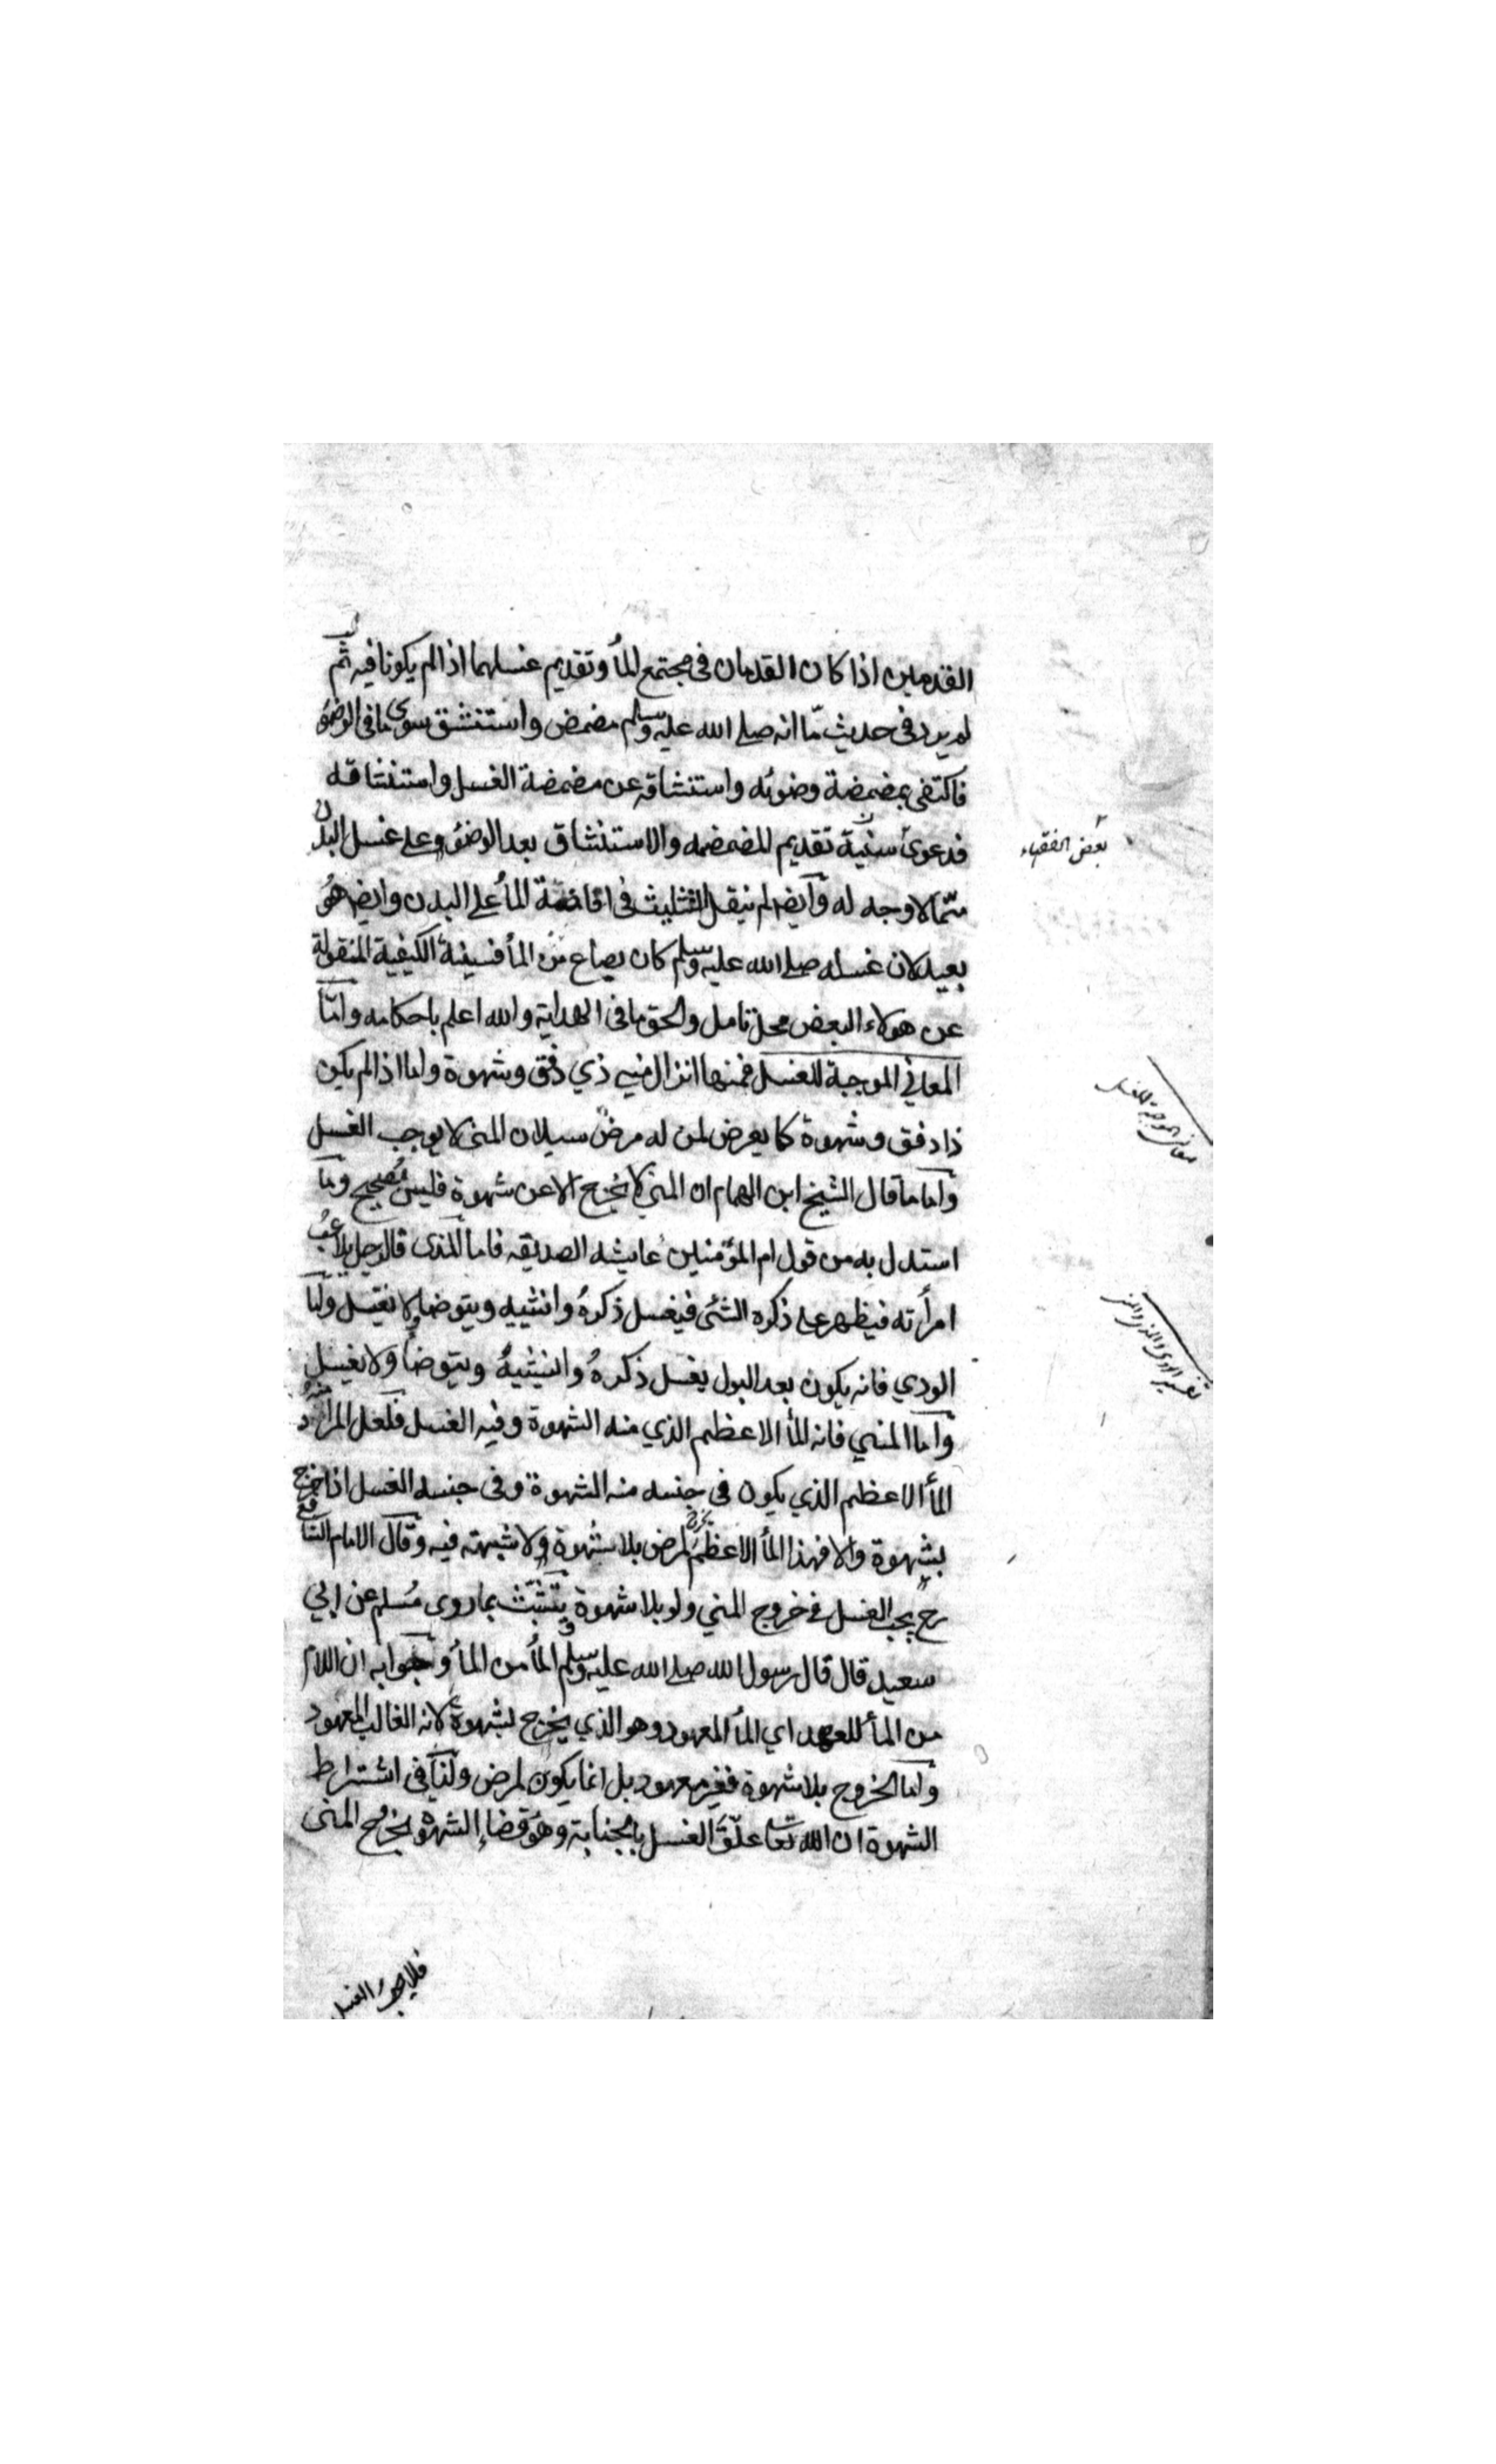 القدمين اذا كان القدمان فى مجتمع المأ وتقديم غسلهما اذا لم يكونا فيه ثم
لم يرد فى حديث ما انه صلى الله عليه وسلم مضمض واستنشق سوى ما فى الوضؤ
فاكتفى بمضمضة وضوئه واستنشاقه عن مضمضة الغسل واستنشاقه
فدعوى سنية تقديم المضمضه والاستنشاق بعد الوضؤ وعلى غسل البدن
مما لا وجه له وايضا لم ينقل التثليث فى افاضة المأ على البدن وايضا هو
بعيد لان غسله صلى الله عليه وسلم كان بصاع من المأ فسنية الكيفية المنقولة
عن هولاء البعض محل تامل والحق ما فى الهداية والله اعلم باحكامه واما
المعاني الموجبة للغسل فمنها انزال مني ذي دفق وشهوة واما اذا لم يكن
ذا دفق وشهوة كما يعرض لمن له مرض سيلان المنى لا يوجب الغسل
واما ما قال الشيخ ابن الهمام ان المنى لا يخرج الا عن شهوة فليس بصحيح وما
استدل به من قول ام المؤمنين عايشه الصديقه فاما المذى قالرجل يلاعب
امرأته فيظهر على ذكره الشئ فيغسل ذكره وانثييه ويتوضا ولا يغتسل واما
الودي فانه يكون بعد البول يغسل ذكره وانثييه ويتوضا ولا يغتسل
واما المني فانه المأ الاعظم الذي منه الشهوة وفيه الغسل فلعل المراد منه
المأ الاعظم الذي يكون فى جنسه منه الشهوة وفى جنسه الغسل اذا خرج
بشهوة والا فهذا المأ الاعظم يخرج لمرض بلا شهوة ولا شبهته فيه وقال الامام الشافع
رح يجب الغسل فى خروج المني ولو بلا شهوة يتشبث بما روى مسلم عن ابي
سعيد قال قال رسول الله صلى الله عليه وسلم المأ من المأ وجوابه ان اللام
من المأ للعهد اي المأ المعهود وهو الذي يخرج بشهوة لانه الغالب المعهود
واما الخروج بلا شهوة فغير معهود بل انما يكون لمرض ولنا فى اشتراط
الشهوة ان الله تعا علق الغسل بالجنابة وهو قضاء الشهوة بخروج المنى
فلا يجب الغسل
بعض الفقهاء
معانى الموجبة للغسل
تفسير الودى والمذى والمنى